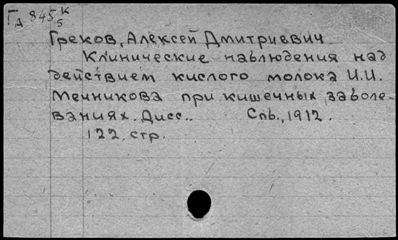 Гд 845 К/5
Греков, Алексей Дмитриевич.
Клинические наблюдения над
действием кислого молока И.И.
Мечникова при кишечных заболе-
ваниях. Дисс.. Спб., 1912.
122 стр.